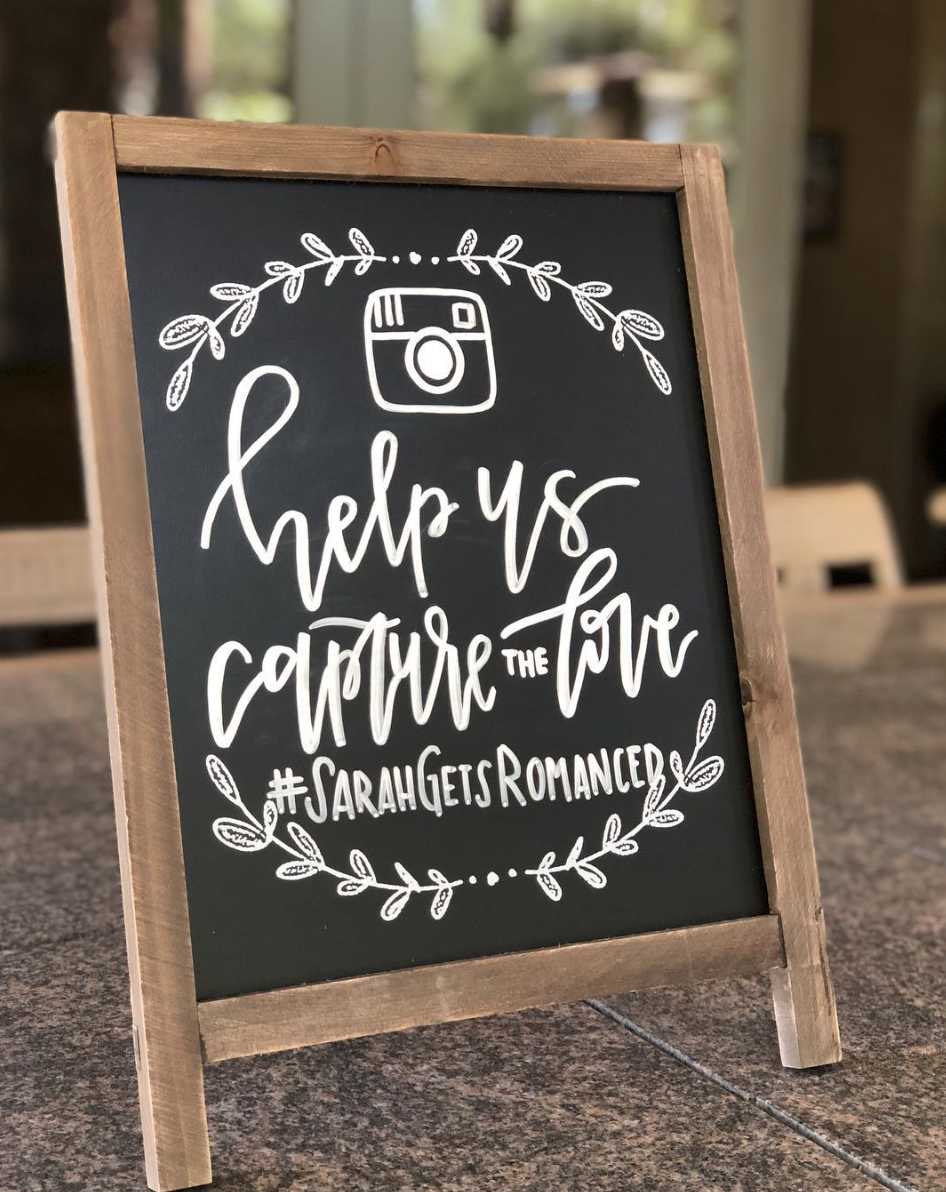 help us
capture THE love
#SARAHGETSROMANCED